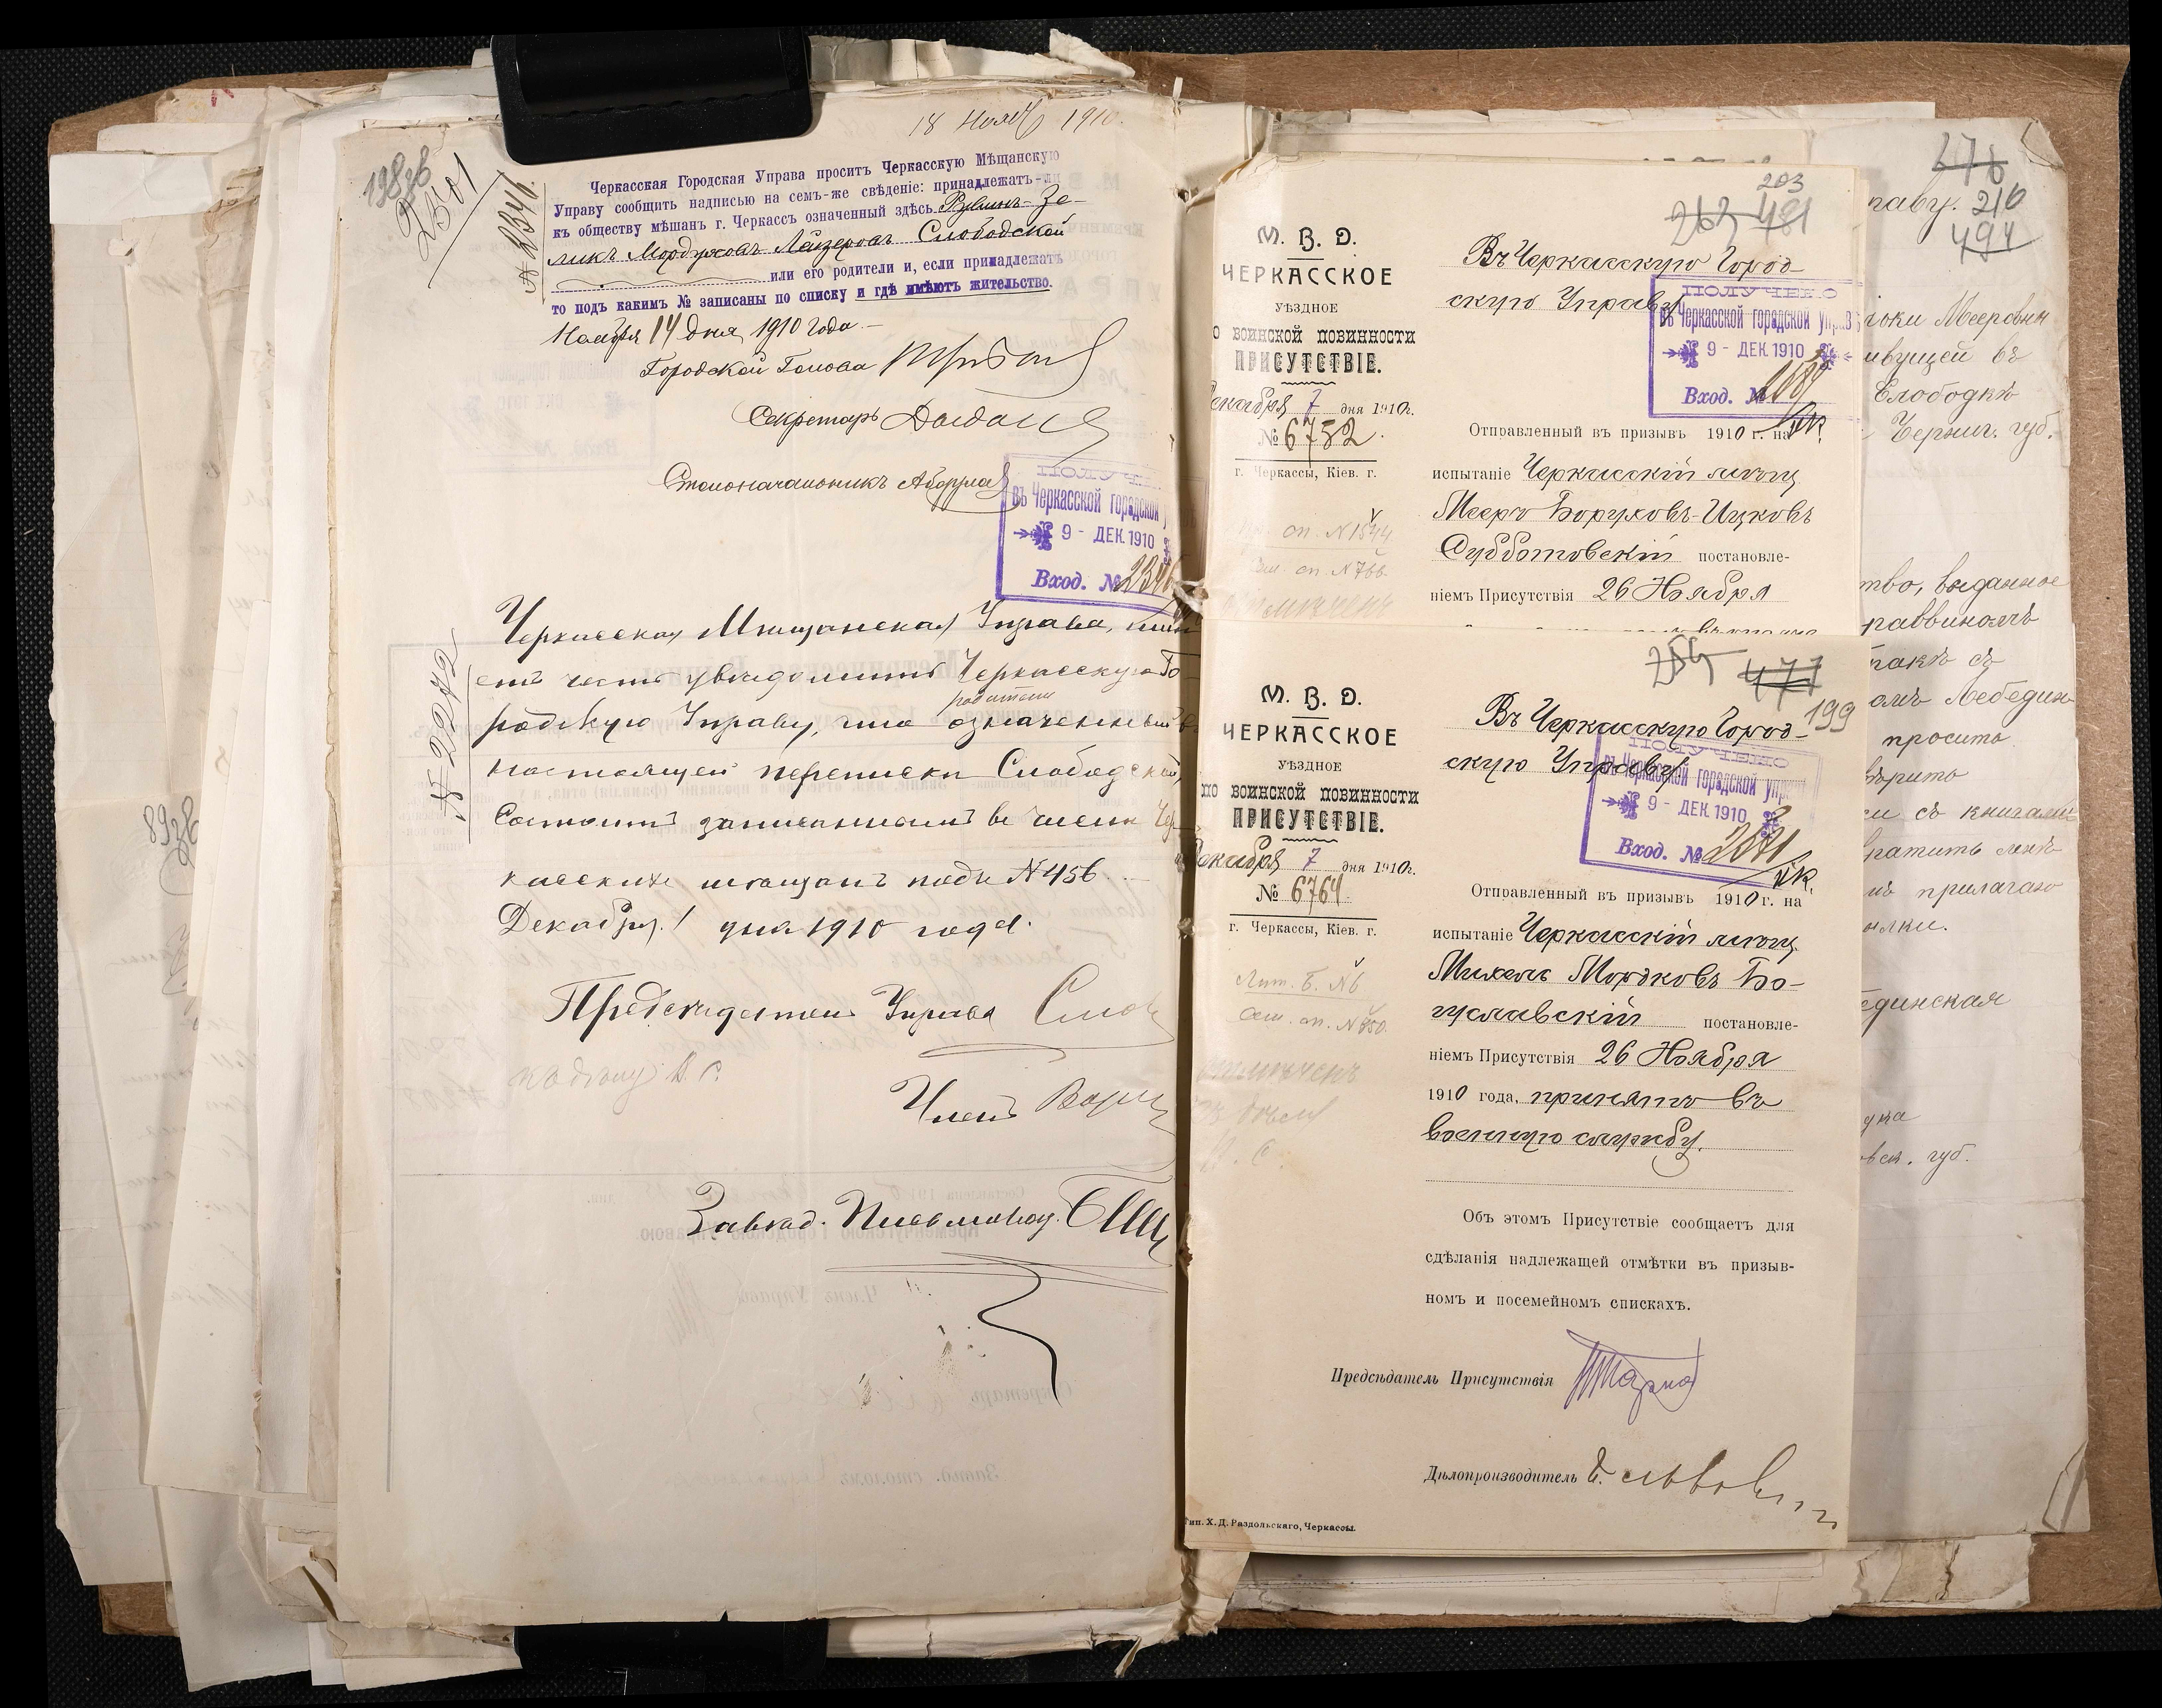 18 Нояб 1910.
198 об
2501
№ 2341.
Черкасская Городская Управа проситъ Черкасскую Мѣщанскую
Управу сообщить надписью на семъ-же свѣденіе: принадлежатъ-ли
къ обществу мѣщанъ г. Черкассъ означенный здѣсь Рувинъ-Зе-
ликъ Мордуховъ Лейзеровъ Слободской
или его родители и, если принадлежатъ
то подъ какимъ № записаны по списку и гдѣ имѣютъ жительство.
Ноября 14 дня 1910 года.
Городской Голова
Секретарь
Столоначальникъ
ПОЛУЧЕ
въ Черкасской городской
9 - ДЕК. 1910
Вход. №
№ 2272
Черкасская Мѣщанская Управа, имѣ
етъ честь увѣдомить Черкасскую Го
родскую Управу, что означенный въ
родители
настоящей перепискѣ Слободской
Состоитъ записаннымъ въ числѣ Чер
касскихъ мѣщанъ подъ №456.
Декабря 1 дня 1910 года.
Предсѣдатель Управы
Членъ
Завѣд. Письмовод.
203
263 481
М. В. Д.
ЧЕРКАССКОЕ
УѢЗДНОЕ
о воинской повинности
ПРИСУТСТВІЕ.
екабря 7 дня 1910г.
№ 6752.
г. Черкассы, Кіев. г.
оп. №1544
сп. №766.
Въ Черкасскую Город-
скую Управу
ПОЛУЧЕНО
въ Черкасской городской управ
9 - ДЕК. 1910
Вход. №
Отправленный въ призывъ 1910 г. на
испытаніе Черкасскій мѣщ.
Мееръ Боруховъ-Ицковъ
Субботовскій постановле-
ніемъ Присутствія 26 Ноября
477
199
М. В. Д.
ЧЕРКАССКОЕ
УѢЗДНОЕ
по воинской повинности
ПРИСУТСТВІЕ.
Декабря 7 дня 1910г.
№ 6764.
г. Черкассы, Кіев. г.
Лит. Б. №6
Въ Черкасскую Город-
скую Управу
ПОЛУЧЕНО
въ Черкасской городской упр
9 - ДЕК. 1910
Вход. №
Отправленный въ призывъ 1910 г. на
испытаніе Черкасскій мѣщ.
Михель Мордковъ Бо-
гуславскій постановле-
ніемъ Присутствія 26 Ноября
1910 года, принятъ въ
военную службу.
Объ этомъ Присутствіе сообщаетъ для
сдѣланія надлежащей отмѣтки въ призыв-
номъ и посемейномъ спискахъ.
Предсѣдатель Присутствія
Дѣлопроизводитель
Тип. Х. Д. Раздольскаго, Черкассы.
476
раву. 210
494
Мееровны
ивущей въ
Слободкѣ
Черниг. губ.
тво, выданное
раввиномъ
Лебедин
проситъ
ѣрить
съ книгами
вратить мнѣ
прилагаю
ылки.
единская
вск. губ.